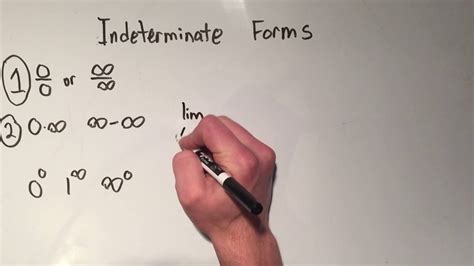 Indeterminate Forms
① 0/0 or ∞/∞
② 0·∞ ∞-∞
lim
0⁰ 1^∞ ∞⁰